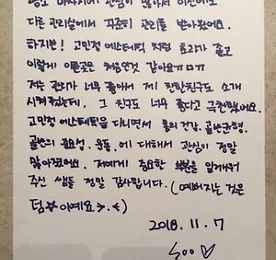 평소 마사지에 관심이 많아서 이전에도
다른 관리샵에서 꾸준히 관리를 받아왔어요.
하지만! 고민정 에스테틱 처럼 효과가 좋고
이렇게 아픈곳은 처음인것 같아요ㅠㅁㅠ
저는 관리가 너무 좋아서 제 친한친구도 소개
시켜줬는데, 그 친구도 너무 좋다고 극찬했어요.
고민정 에스테틱을 다니면서 몸의 건강, 골반균형,
골반의 중요성, 운동, 에 대해서 관심이 정말
많아졌어요. 저에게 중요한 부분을 일깨워
주신 쌤들 정말 감사합니다. (예뻐지는 것은
덤☆이에요 >.<)
2018. 11. 7
Soo ♡